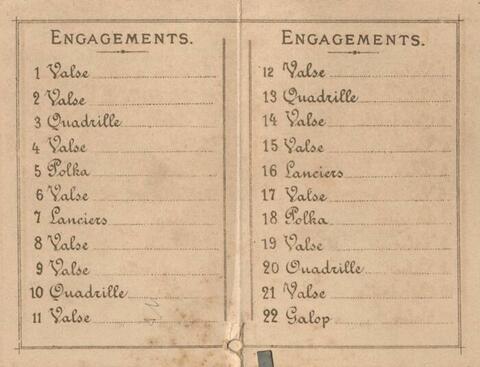 ENGAGEMENTS.
1 Valse
2 Valse
3 Quadrille
4 Valse
5 Polka
6 Valse
7 Lanciers
8 Valse
9 Valse
10 Quadrille
11 Valse
ENGAGEMENTS.
12 Valse
13 Quadrille
14 Valse
15 Valse
16 Lanciers
17 Valse
18 Polka
19 Valse
20 Quadrille
21 Valse
22 Galop